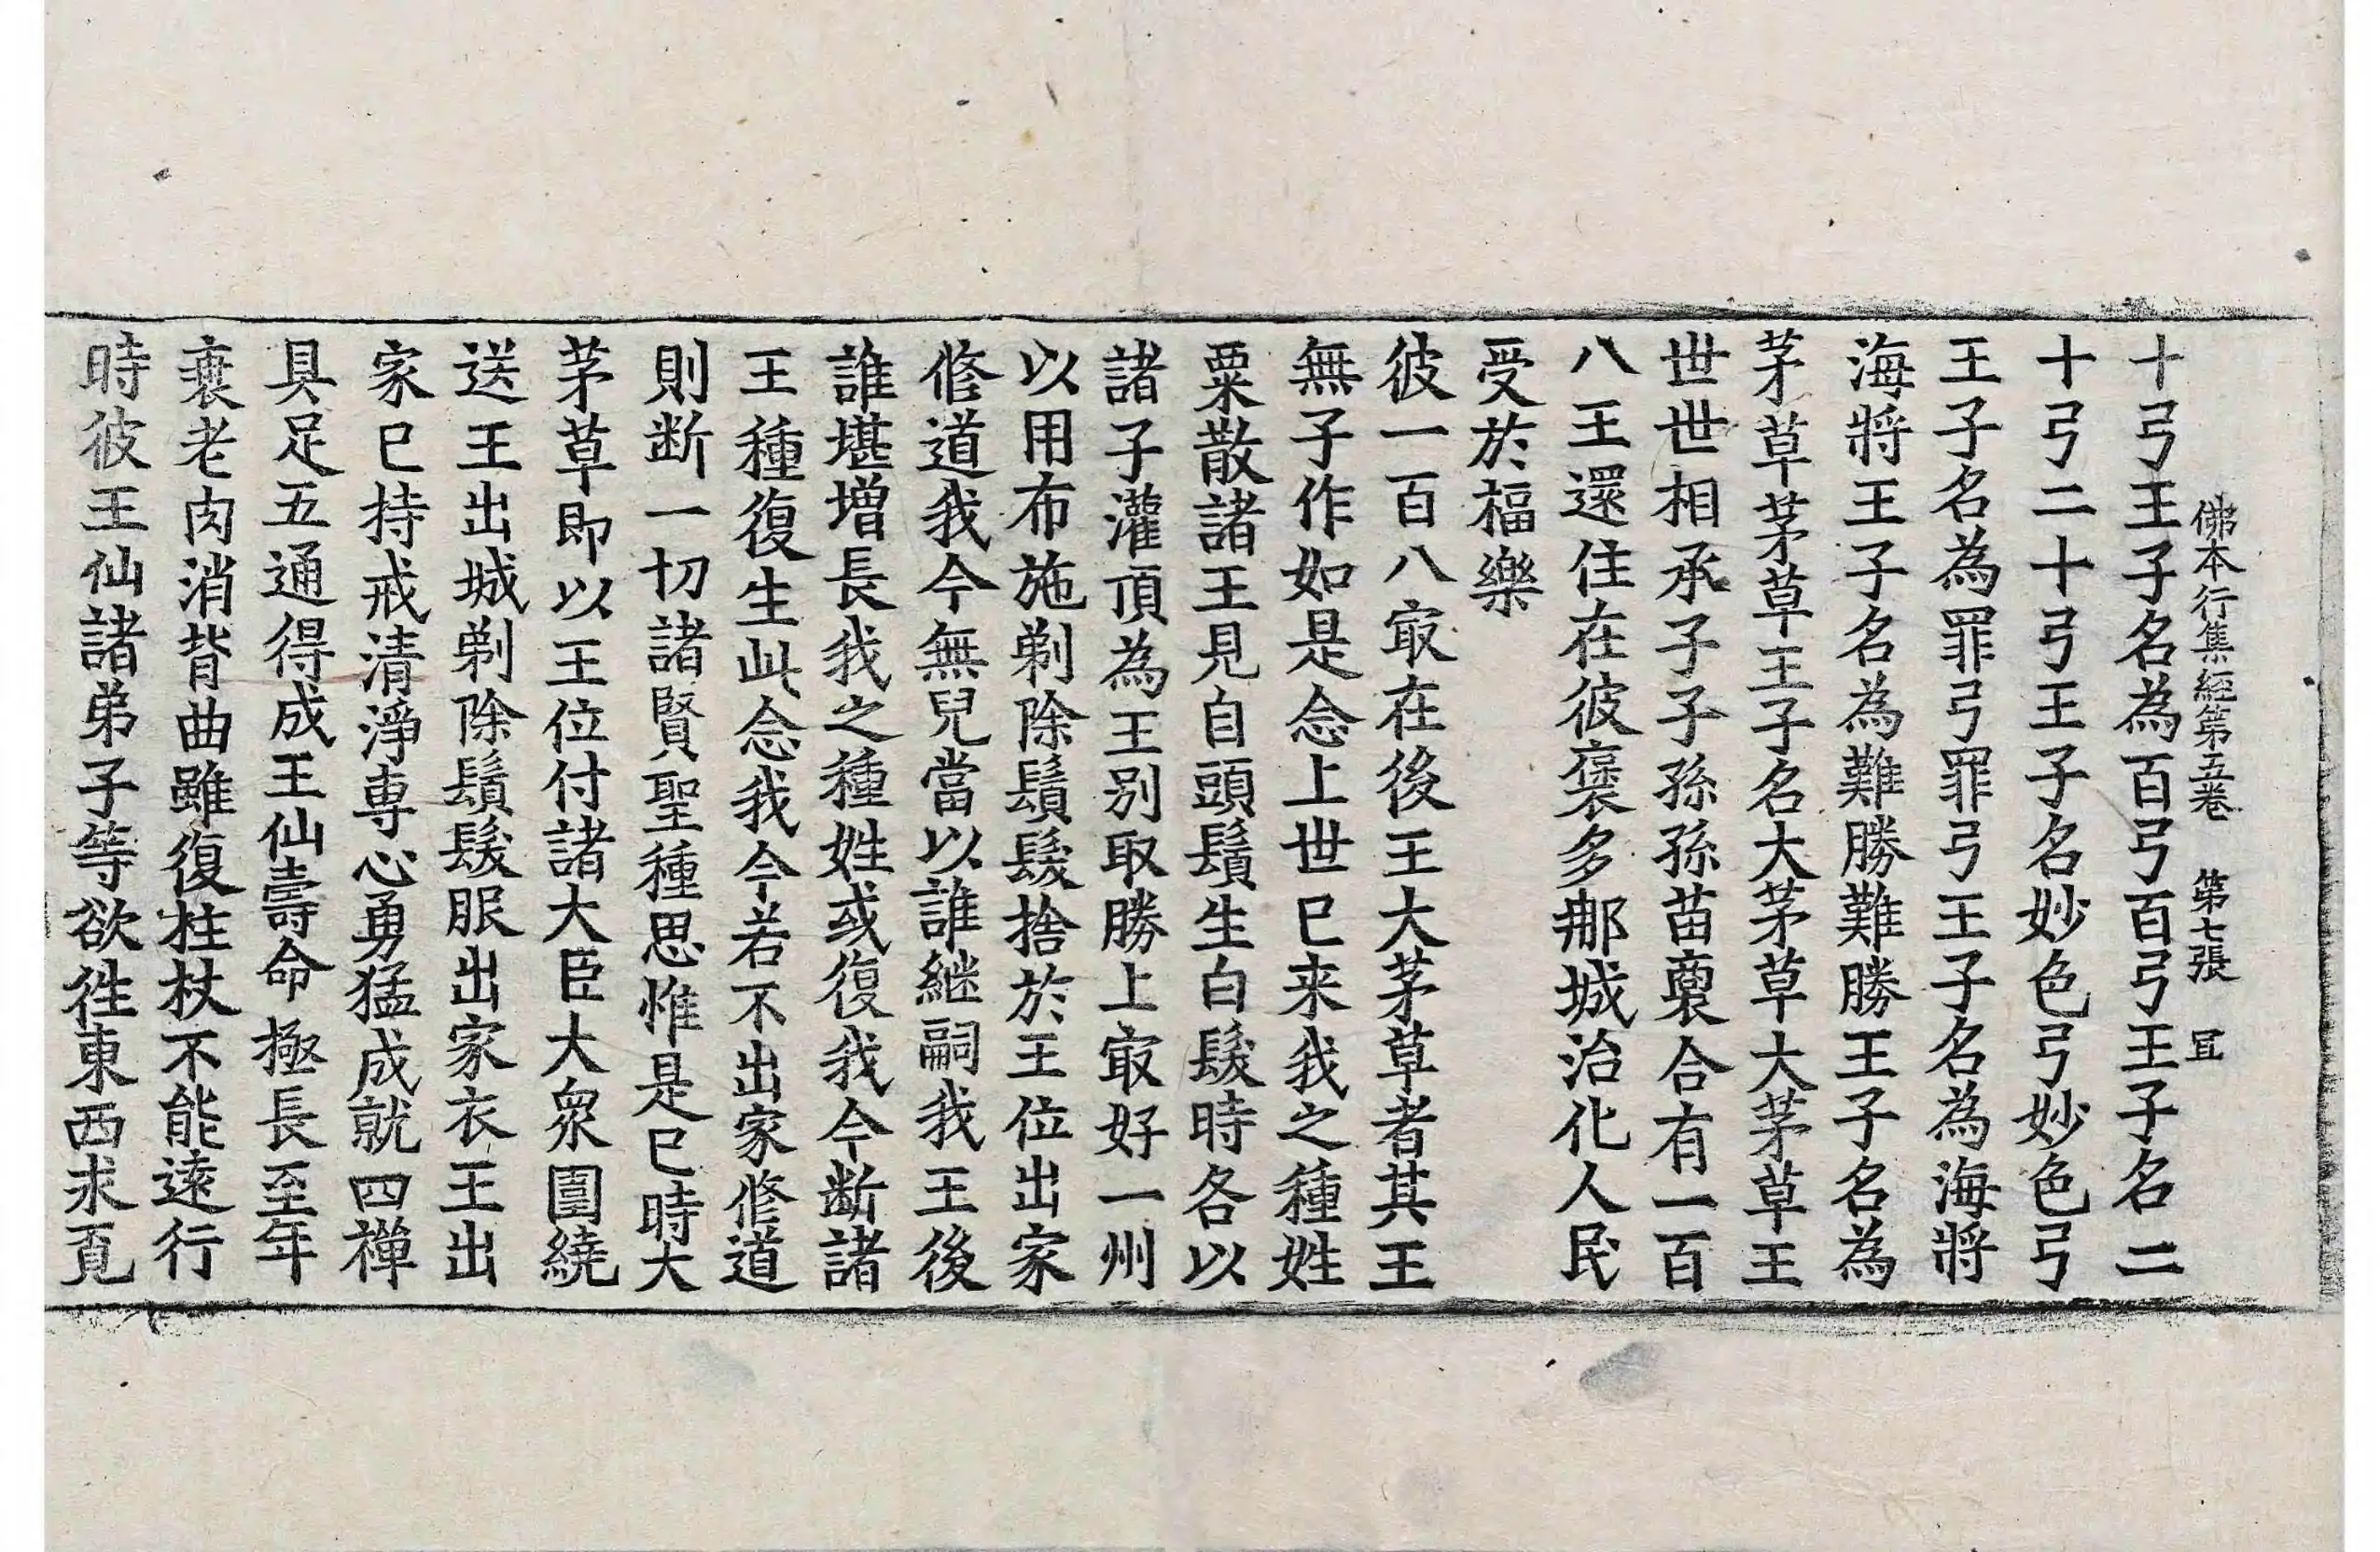 佛本行集經第五卷 第七張 冝
十弓王子名為百弓百弓王子名二
十弓二十弓王子名妙色弓妙色弓
王子名為罪弓罪弓王子名為海將
海將王子名為難勝難勝王子名為
茅草茅草王子名大茅草大茅草王
世世相承子子孫孫苗裔合有一百
八王還住在彼褒多那城治化人民
受於福樂
彼一百八㝡在後王大茅草者其王
無子作如是念上世已来我之種姓
粟散諸王見自頭鬚生白髮時各以
諸子灌頂為王別取勝上㝡好一州
以用布施剃除鬚髮捨於王位出家
修道我今無兒當以誰継嗣我王後
誰堪增長我之種姓或復我今断諸
王種復生此念我今若不出家修道
則断一切諸賢聖種思惟是已時大
茅草即以王位付諸大臣大衆圍繞
送王出城剃除鬚髮服出家衣王出
家已持戒清淨専心勇猛成就四禪
具足五通得成王仙壽命極長至年
衰老肉消背曲雖復柱杖不能遠行
時彼王仙諸弟子等欲徃東西求覓